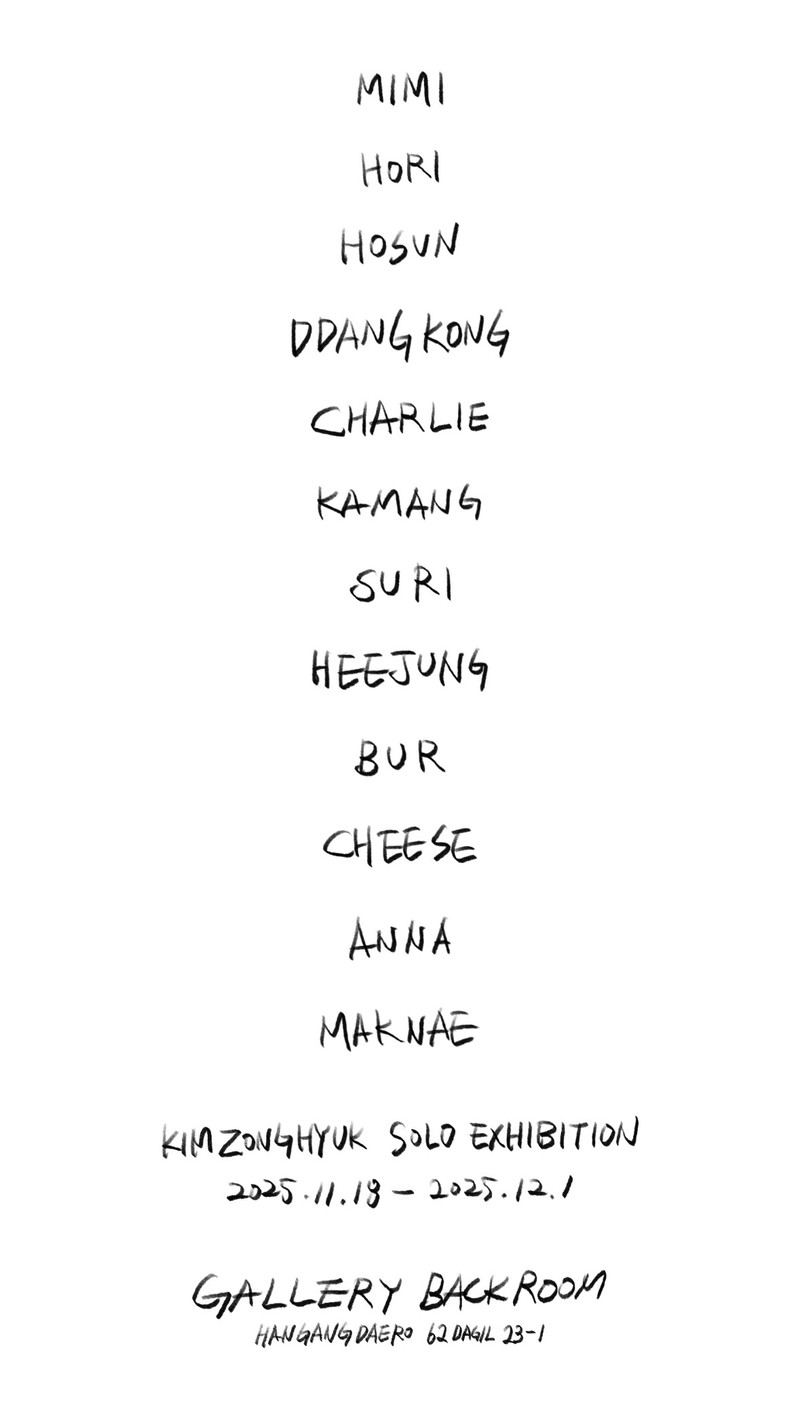 MIMI
HORI
HOSUN
DDANGKONG
CHARLIE
KAMANG
SURI
HEEJUNG
BUR
CHEESE
ANNA
MAKNAE
KIMZONGHYUK SOLO EXHIBITION
2025.11.19 – 2025.12.1
GALLERY BACKROOM
HANGANGDAERO 62DAGIL 23-1